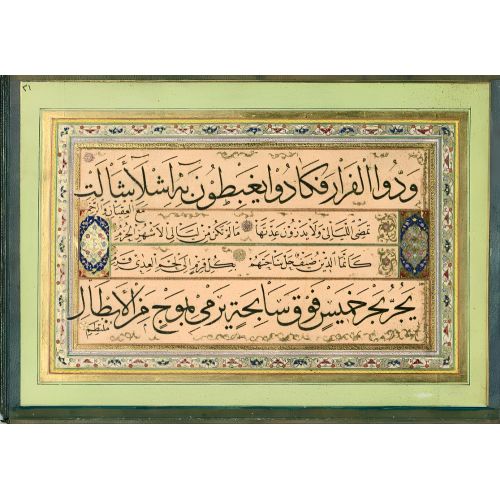 ودوا الفرار فكادوا يغبطون به اشلاء شالت
مع العقبان والرخم
تمضي الليالي ولا يدرون عدتها ما لم تكن من ليالي الاشهر الحرم
كانما الدين ضيف حل ساحتهم بكل قرم الى لحم العدى قرم
يجر بحر خميس فوق سابحة يرمي بموج من الابطال
ملتطم